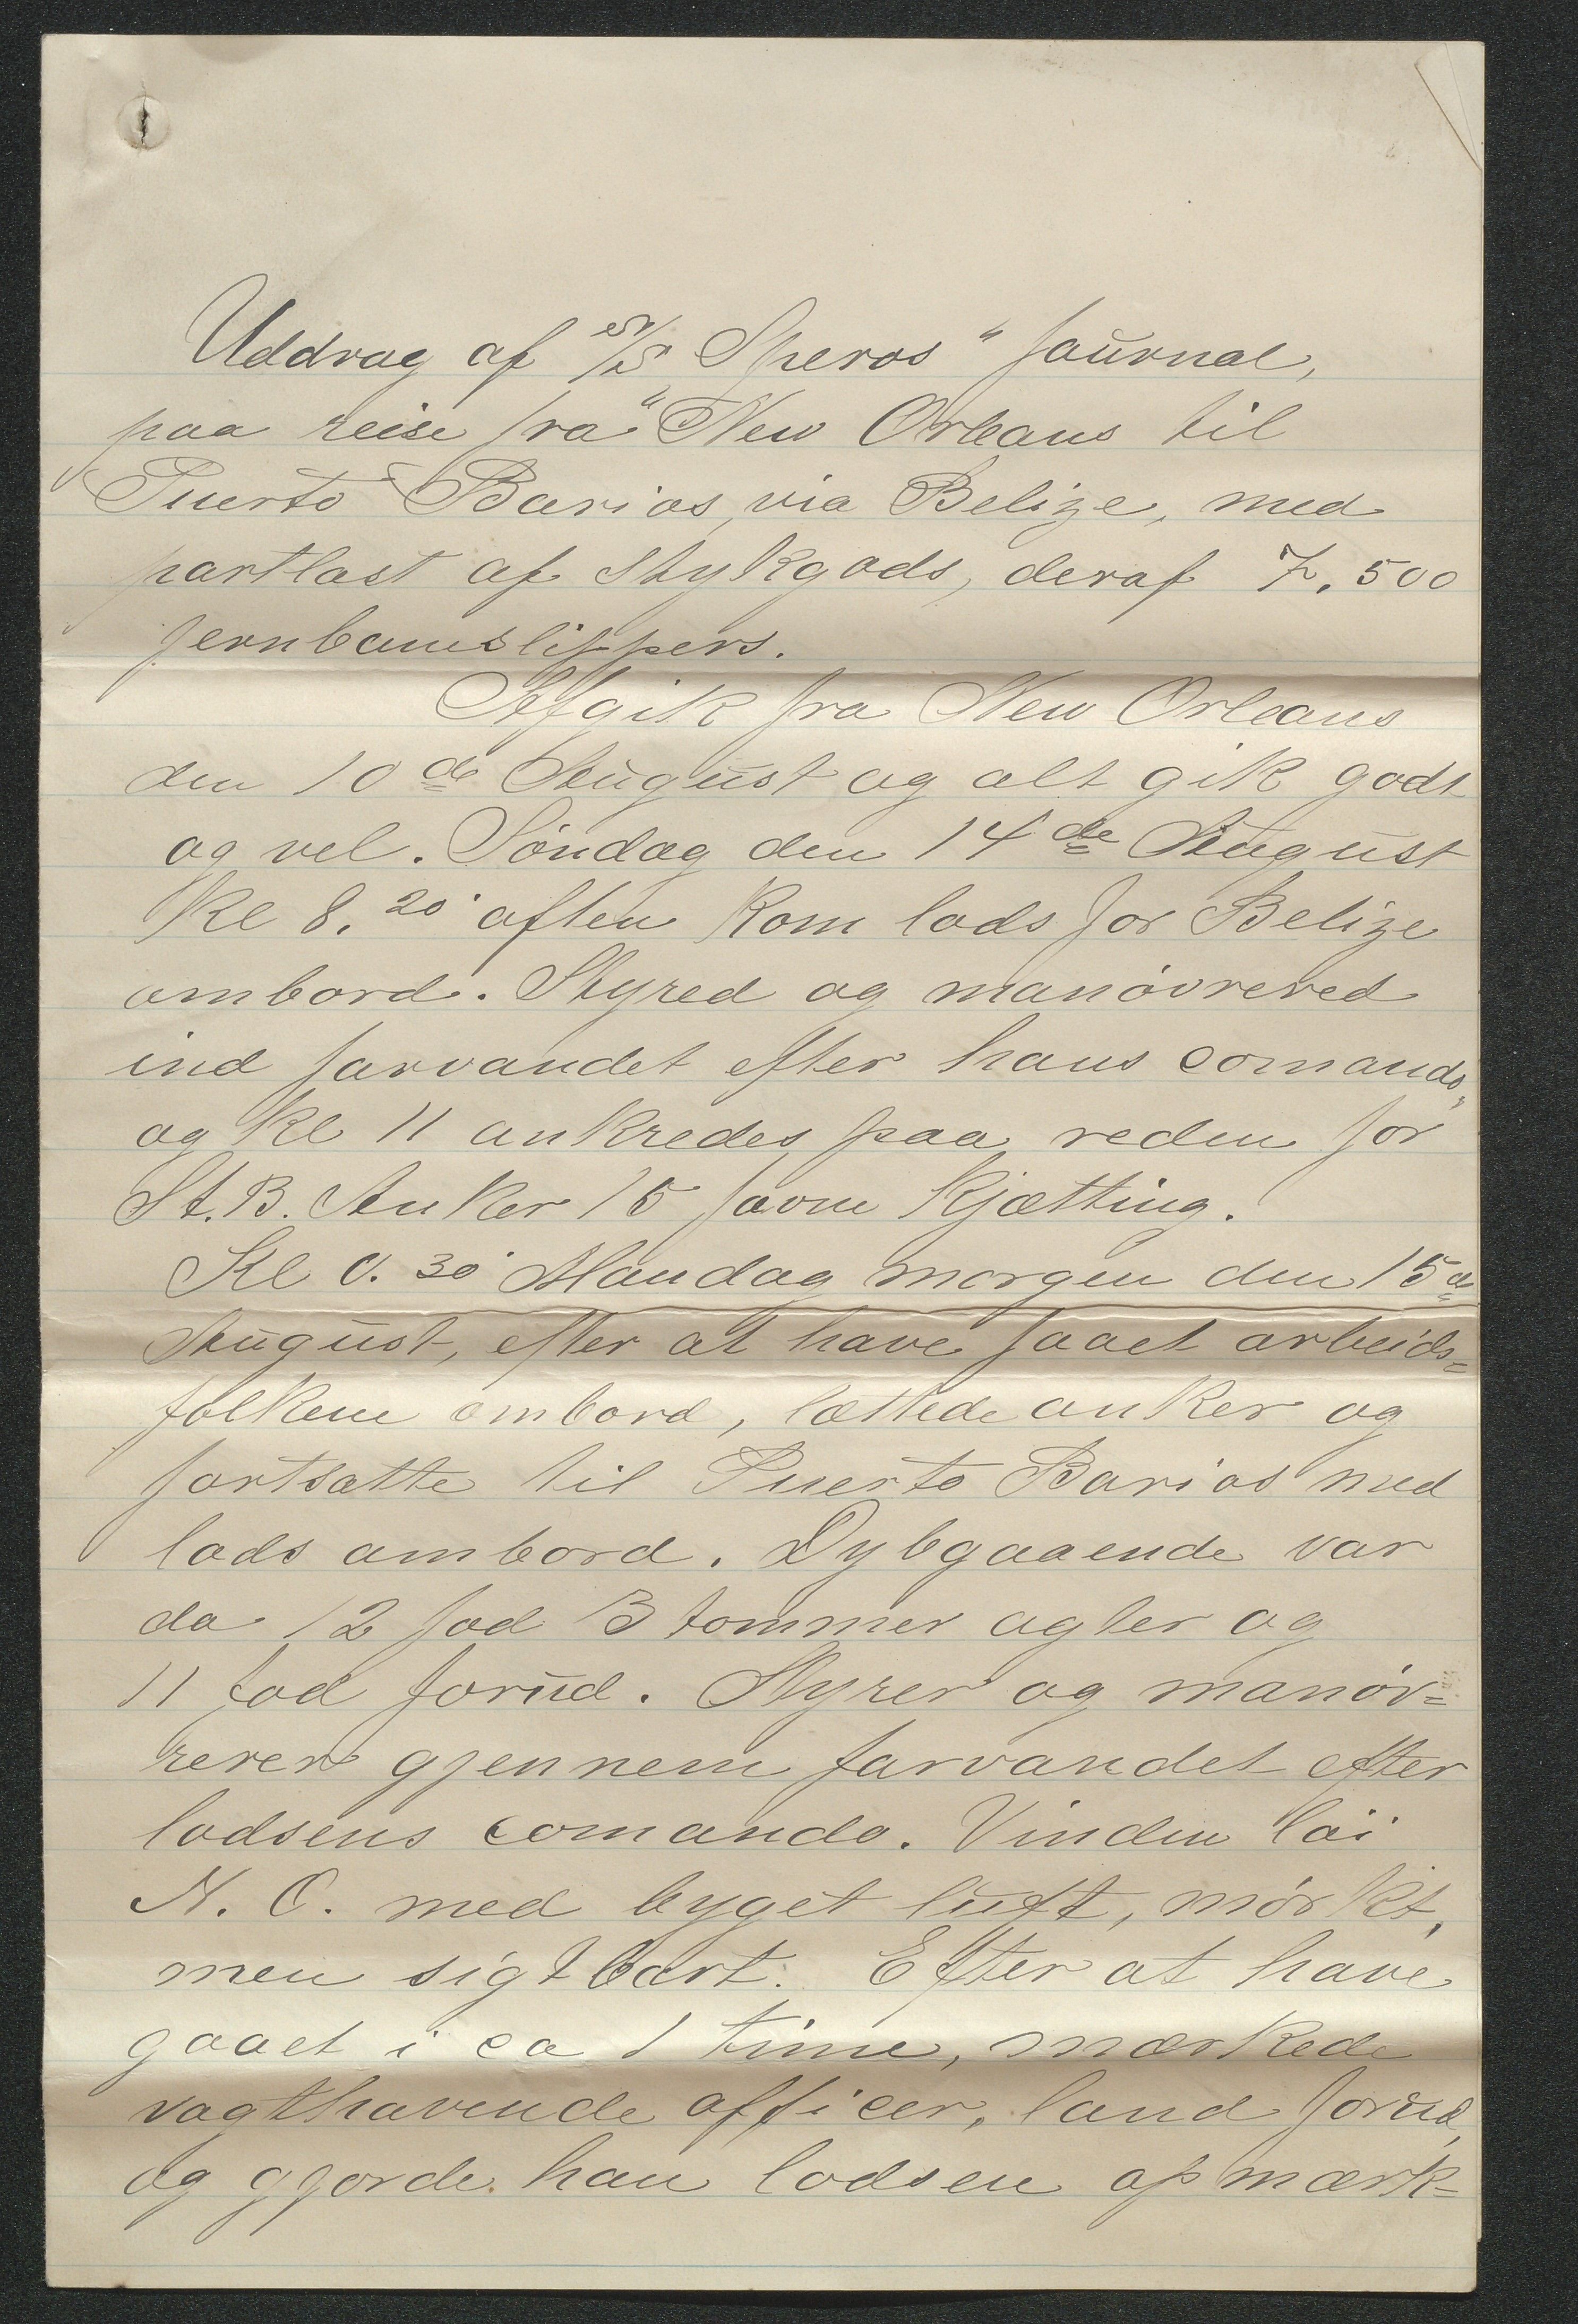 Uddrag af S/S „Speros" Journal,
paa reise fra New Orleans til
Puerto Barios, via Belize, med
partlast af Stykgods, deraf 7,500
jernbaneslippers.
Afgik fra New Orleans
den 10de August og alt gik godt
og vel. Søndag den 14de August
Kl 8.20 aften kom lods for Belize
ombord. Styred og manøvrered
ind farvandet efter hans comando,
og Kl 11 ankredes paa reden for
St. B. Anker 15 favne Kjætting.
Kl 0.30 Mandag morgen den 15de
August, efter at have faaet arbeids=
folkene ombord, lættede anker og
fortsatte til Puerto Barios med
lods ombord. Dybgaaende var
da 12 fod 3 tommer agter og
11 fod forud. Styrer og manøv=
rerer gjennem farvandet efter
lodsens comando. Vinden løi
N. O. med byget luft, mørkt,
men sigtbart. Efter at have
gaaet i ca 1 time, mærkede
vagthavende officer, land forud,
og gjorde han lodsen opmærk=